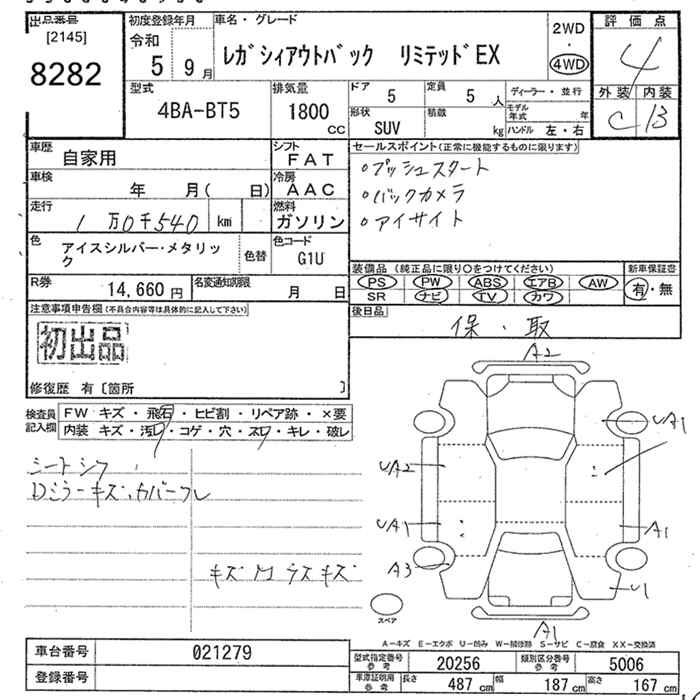 出品番号 初度登録年月 車名・グレード 2WD 評価点
[2145] 令和 ・ 4
8282 5 9月 レガシィアウトバック リミテッドEX 4WD
型式 排気量 ドア 5 定員 5人 ディーラー・並行 外装 内装
4BA-BT5 1800cc 形状 SUV 積載 kg モデル年式 年 C B
ハンドル 左・右
車歴 自家用 シフト FAT セールスポイント(正常に機能するものに限ります)
車検 年 月( 日) 冷房 AAC ○プッシュスタート
○バックカメラ
走行 1万0千540 km 燃料 ガソリン ○アイサイト
色 アイスシルバー・メタリック 色替 色コード G1U
装備品(純正品に限り○をつけてください) 新車保証書
PS PW ABS エアB AW 有・無
SR ナビ TV カワ
R券 14,660円 名変通知期限 月 日
注意事項申告欄(不具合内容等は具体的に記入して下さい) 後日品 保・取
初出品
修復歴 有〔箇所 〕
検査員記入欄 FW キズ・飛石・ヒビ割・リペア跡・×要
内装 キズ・汚レ・コゲ・穴・スレ・キレ・破レ
シートシワ
Dミラーキズ、カバーフレ
キズ M ラスキズ
A2
UA1
UA2
UA1
A1
A3
U1
A1
スペア
A-キズ E-エクボ U-凹み W-補修跡 S-サビ C-腐食 XX-交換済
車台番号 021279 型式指定番号 参考 20256 類別区分番号 参考 5006
登録番号 車庫証明用 参考 長さ 487cm 幅 187cm 高さ 167cm